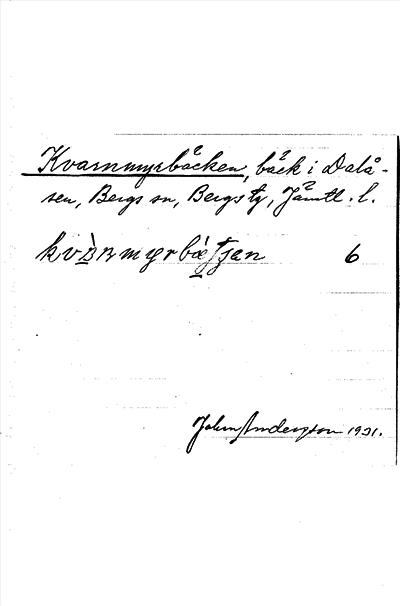 Kvarnmyrbäcken, bäck i Dalå-
sen, Bergs sn, Bergs tg, Jämtl. l.
6
John Andersson 1931.